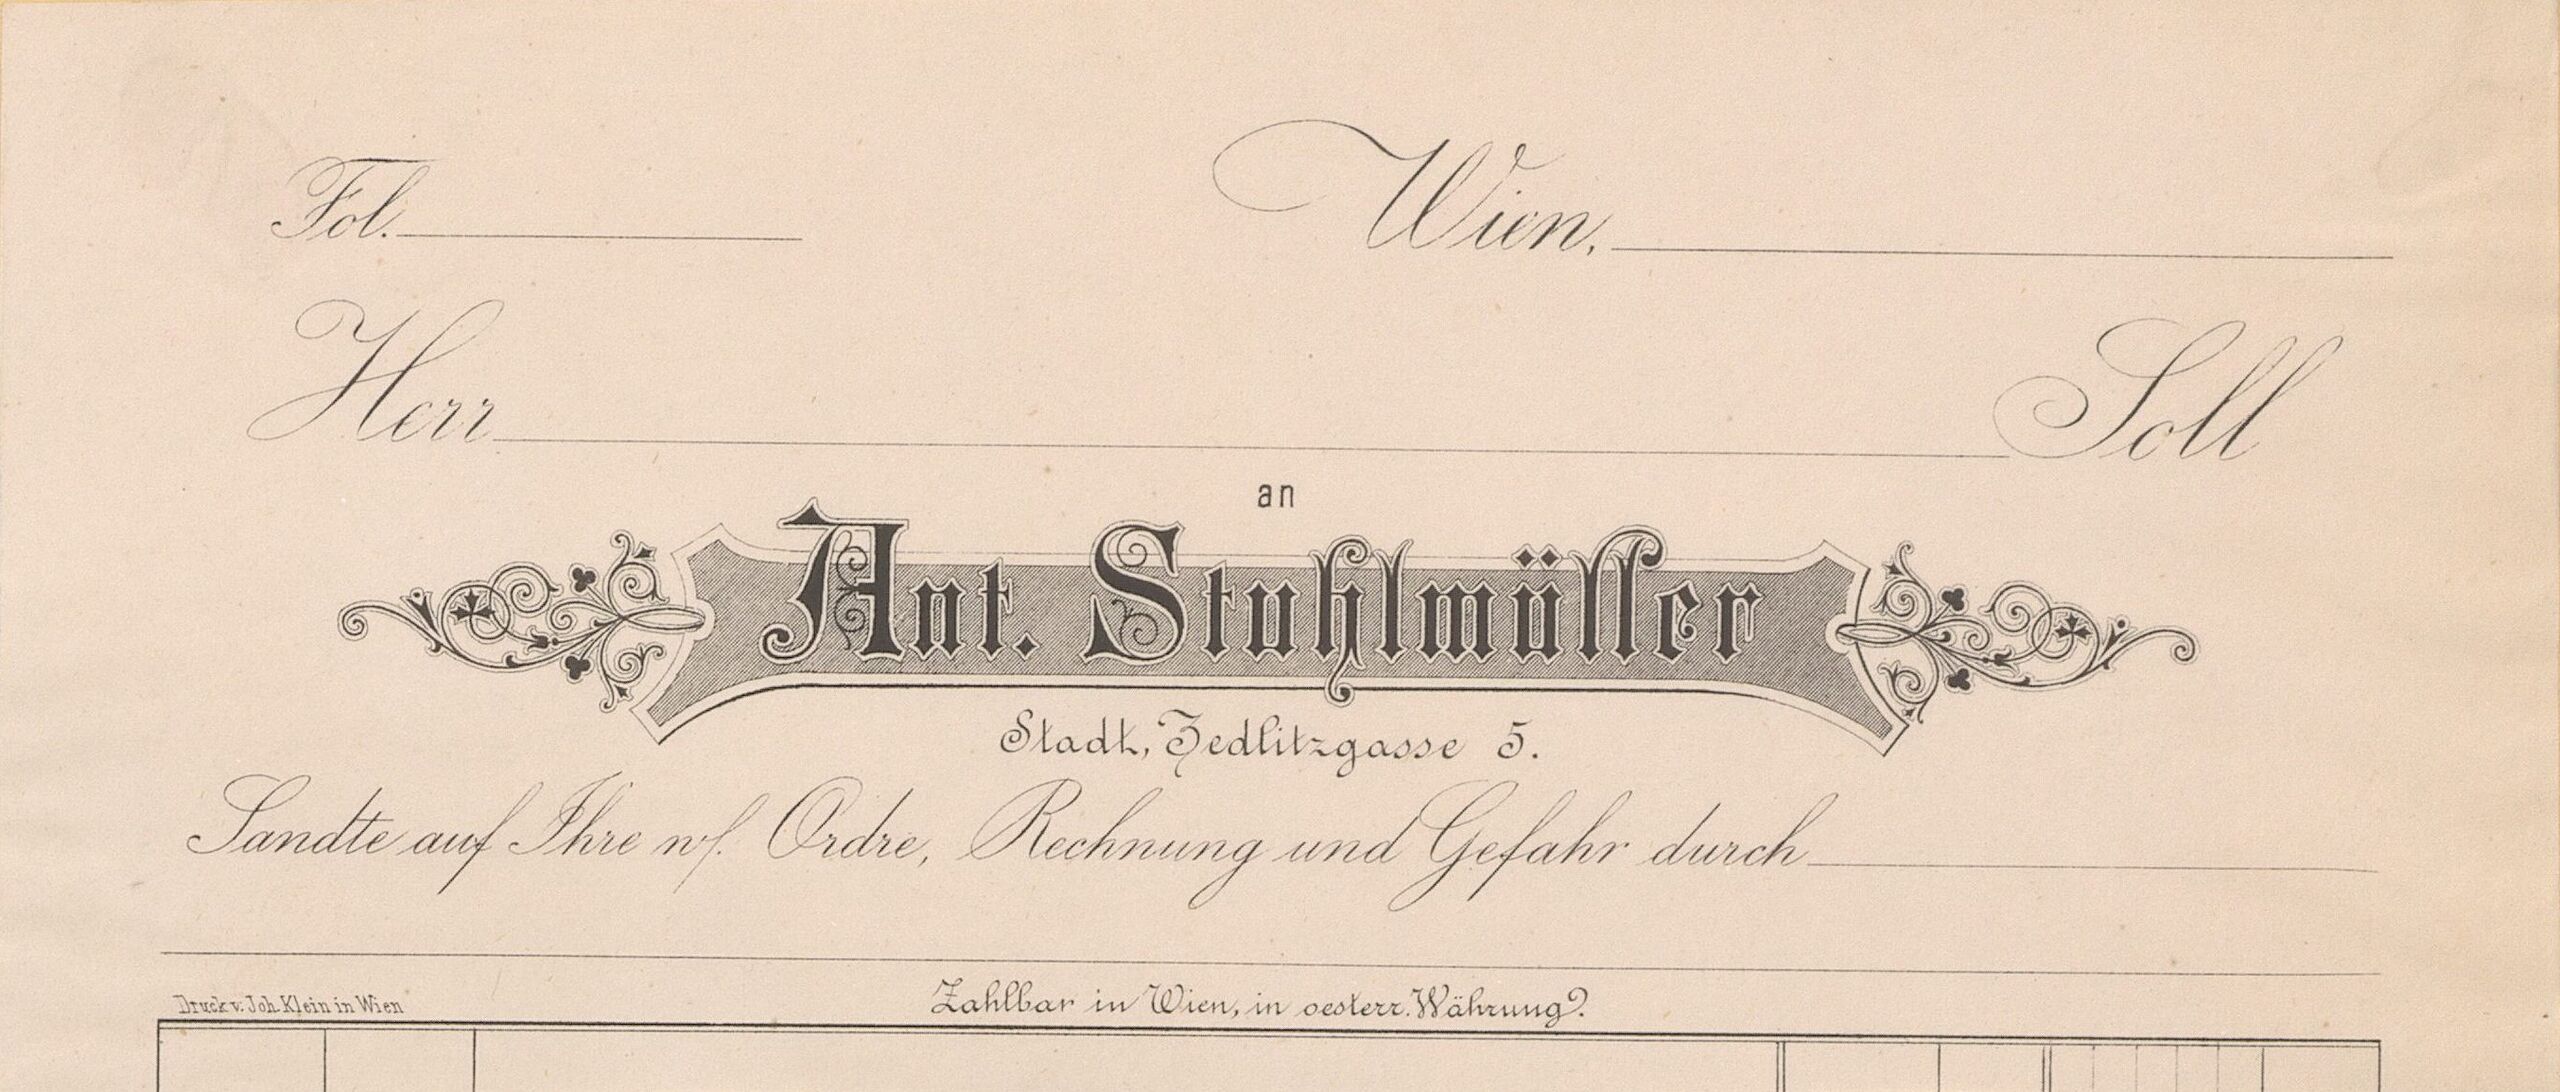 Fol. Wien,
Herr Soll
an
Ant. Stuhlmüller
Stadt, Zedlitzgasse 5.
Sandte auf Ihre w/. Ordre, Rechnung und Gefahr durch
Druck v. Joh. Klein in Wien
Zahlbar in Wien, in oesterr. Währung.